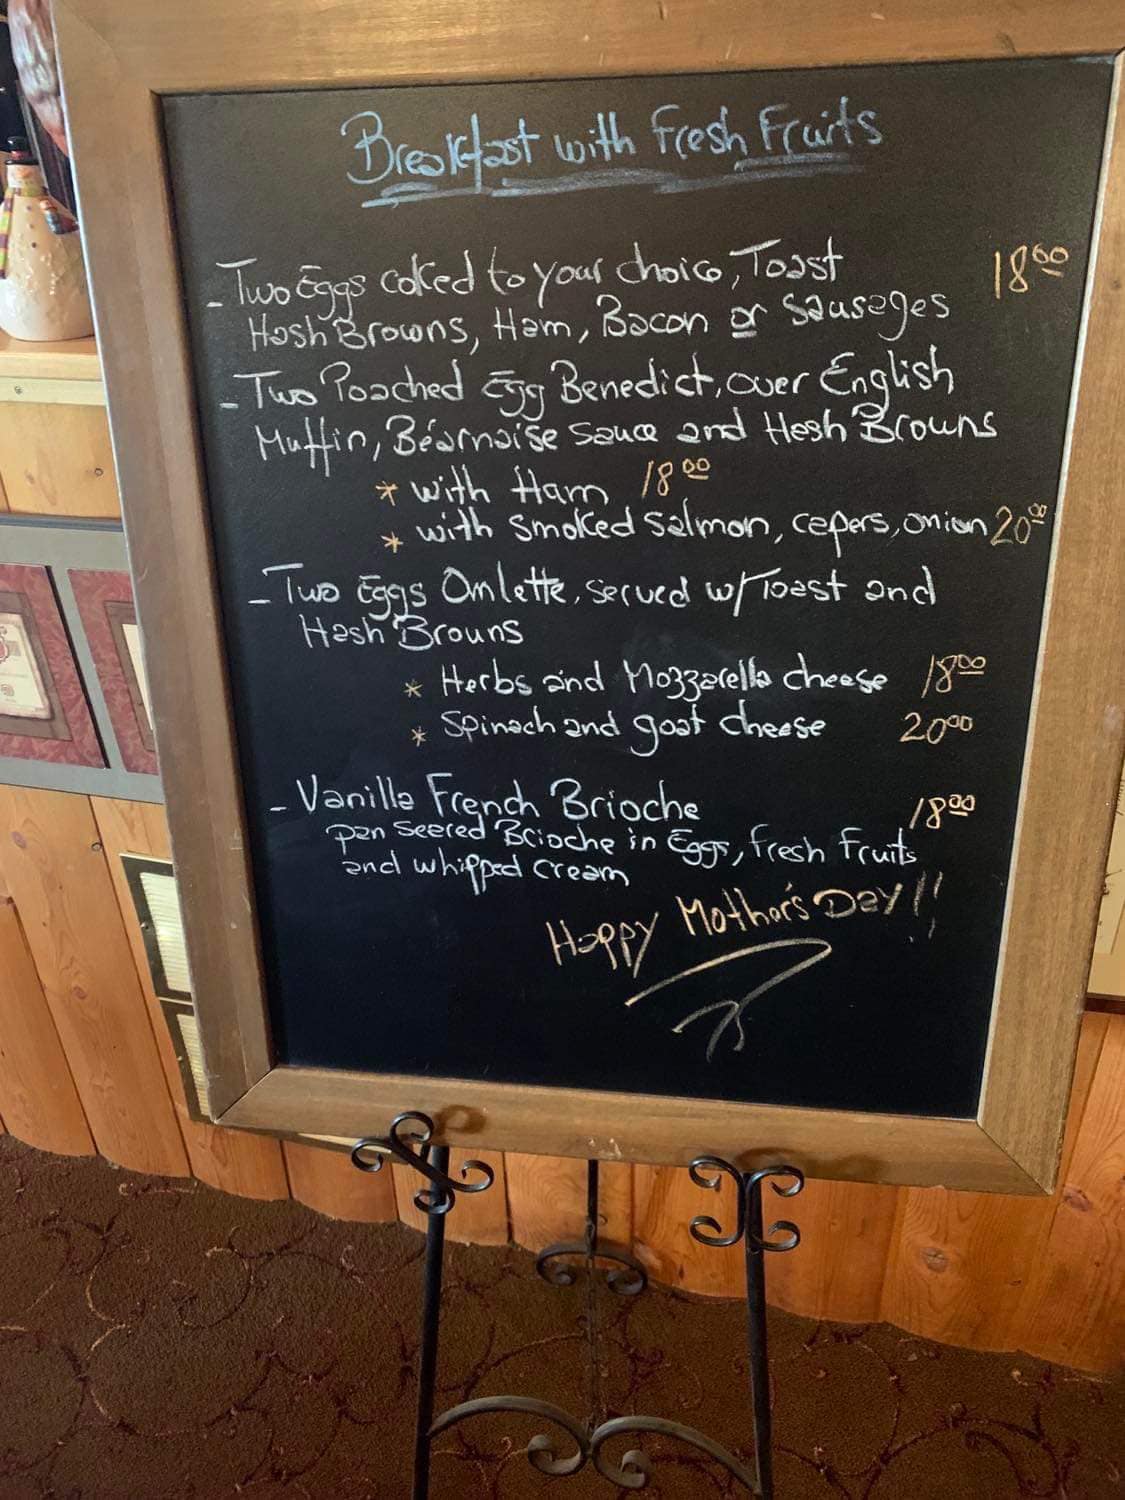 Breakfast with Fresh Fruits
- Two Eggs coked to your choice, Toast 18⁰⁰
Hash Browns, Ham, Bacon or Sausages
- Two Poached Egg Benedict, over English
Muffin, Béarnaise sauce and Hash Browns
* with Ham 18⁰⁰
* with smoked salmon, cepers, onion 20⁰⁰
- Two Eggs Omlette, served w/ Toast and
Hash Browns
* Herbs and Mozzarella cheese 18⁰⁰
* Spinach and goat cheese 20⁰⁰
- Vanilla French Brioche 18⁰⁰
pan seered Brioche in Eggs, fresh Fruits
and whipped cream
Happy Mother's Day!!